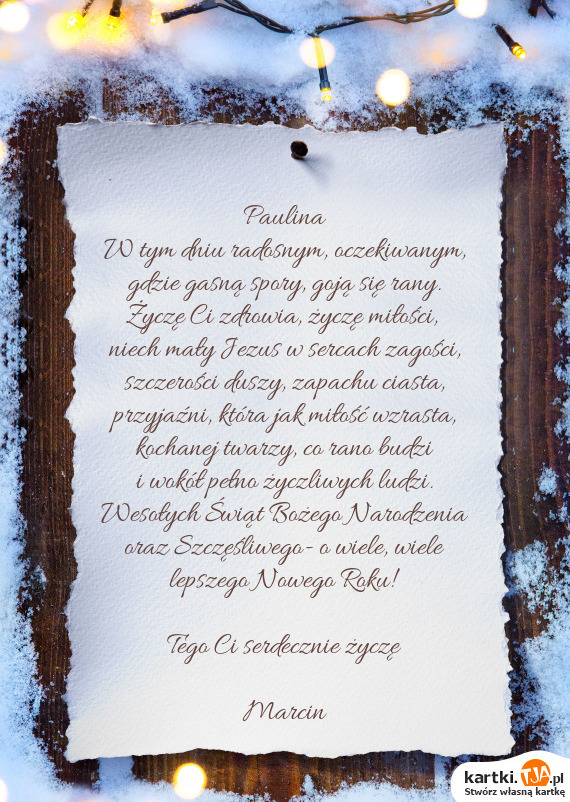 Paulina
W tym dniu radosnym, oczekiwanym,
gdzie gasną spory, goją się rany.
Życzę Ci zdrowia, życzę miłości,
niech mały Jezus w sercach zagości,
szczerości duszy, zapachu ciasta,
przyjaźni, która jak miłość wzrasta,
kochanej twarzy, co rano budzi
i wokół pełno życzliwych ludzi.
Wesołych Świąt Bożego Narodzenia
oraz Szczęśliwego- o wiele, wiele
lepszego Nowego Roku!
Tego Ci serdecznie życzę
Marcin
kartki.TJA.pl
Stwórz własną kartkę